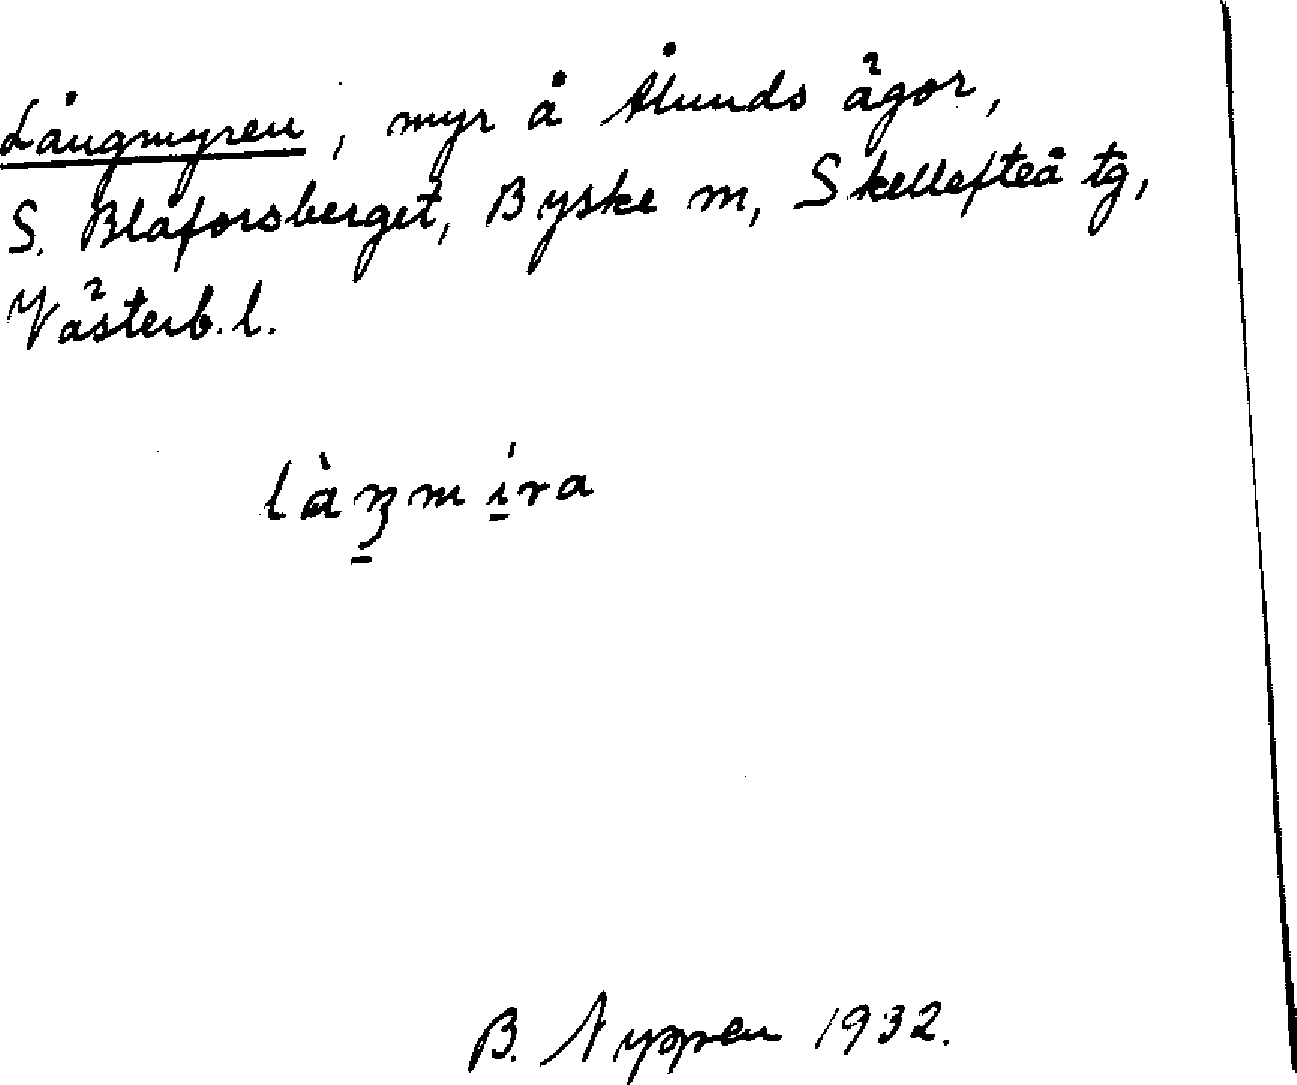 Långmyren, myr å Ålunds ägor,
S. Blåforsberget, Byske sn, Skellefteå tg,
Västerb. l.
làŋmíra
B. Nyppen 1932.